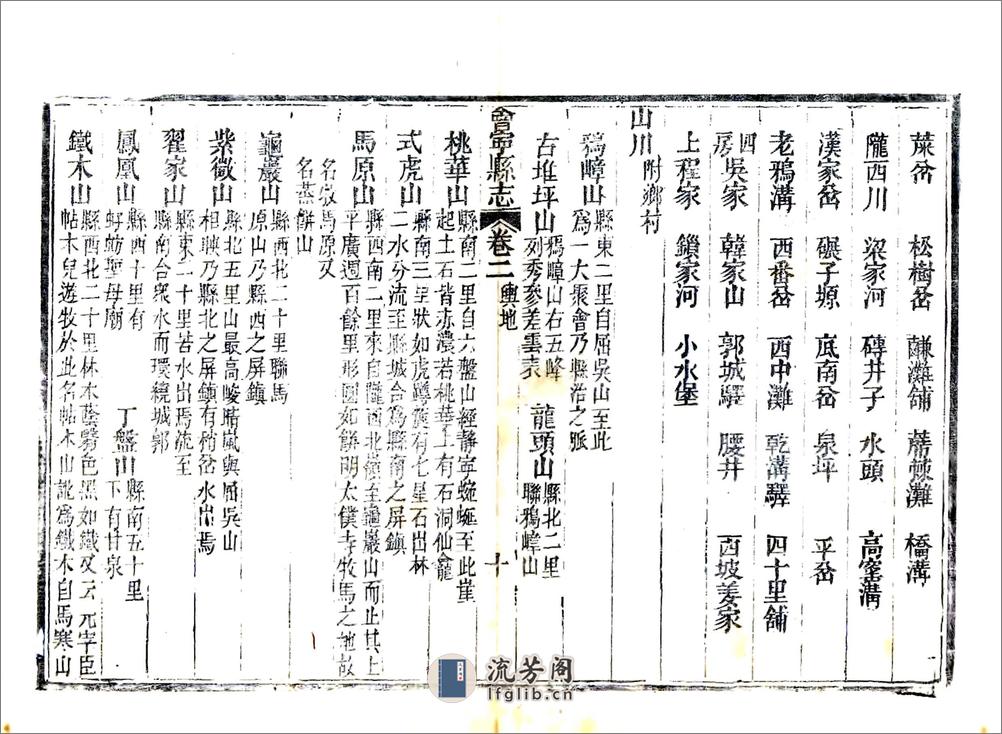 菜岔　松樹岔　蒜灘舖　蒺灘　橋溝
隴西川　梁家河　磚井子　水頭　高窰溝
漢家岔　碾子塬　底南岔　泉坪　平岔
老鴉溝　西番岔　西中灘　乾溝驛　四十里舖
四房吳家　韓家山　郭城驛　腰井　西坡姜家
上程家　鎖家河　小水堡
山川附鄉村
鴉嶂山縣東二里自屈吳山至此為一大聚會乃縣治之脈
古堆坪山鴉嶂山右五峰列秀參差雲表　龍頭山縣北二里聯鴉嶂山
會寧縣志　卷二　輿地　十
桃華山縣南二里自六盤山經靜寧蜿蜒至此崖起土石皆赤濃若桃華上有石洞仙龕
式虎山縣南三里狀如虎蹲旋有七星石出林二水分流至縣城合為縣南之屏鎮
馬原山縣西南二里來自隴西北嶺至龜巖山而止其上平廣週百餘里形圓如餅明太僕寺牧馬之地故名牧馬原又名燕餅山
龜巖山縣西北二十里聯馬原山乃縣西之屏鎮
紫微山縣北五里山最高峻晴嵐與屈吳山相映乃縣北之屏鎮有稍岔水出焉
翟家山縣東二十里苦水出焉流至縣南合眾水而環繞城郭
鳳凰山縣西十里有蚄聖母廟　丁盤山縣南五十里下有甘泉
鐵木山縣西北二十里林木蔭翳色黑如鐵又云元宰臣帖木兒遊牧於此名帖木山訛為鐵木自馬寒山
流芳阁
lfglib.cn